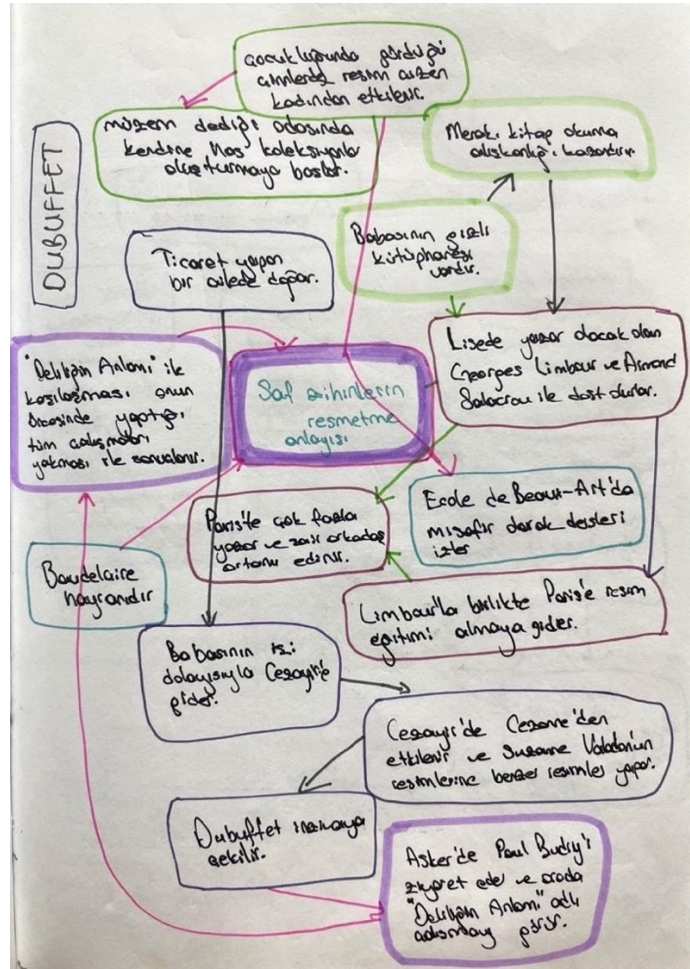 DUBUFFET
Çocukluğunda gördüğü
resim çizen
kadından etkilenir.
müzem dediği odasında
kendine has koleksiyonlar
oluşturmaya başlar.
Merakı kitap okuma
alışkanlığı kazandırır.
Babasının gizli
kütüphanesi
vardır.
Ticaret yapan
bir ailede doğar.
Lisede yazar olacak olan
Georges Limbour ve Armand
Salacrou ile dost olurlar.
"Deliliğin Anlamı" ile
karşılaşması onun
öncesinde yaptığı
tüm çalışmaları
yakması ile sonuçlanır.
Saf zihinlerin
resmetme
anlayışı
Ecole de Beaux-Art'da
misafir olarak dersleri
izler
Paris'te çok fazla
yazar ve şair arkadaş
ortamı edinir.
Baudelaire
hayranıdır
Limbour'la birlikte Paris'e resim
eğitimi almaya gider.
Babasının işi
dolayısıyla Cezayir'e
gider.
Cezayir'de Cezanne'den
etkilenir ve Suzanne Valadon'un
resimlerine benzer resimler yapar.
Dubuffet inzivaya
çekilir.
Asker'de Paul Budry'i
ziyaret eder ve orada
"Deliliğin Anlamı" adlı
çalışmayı görür.